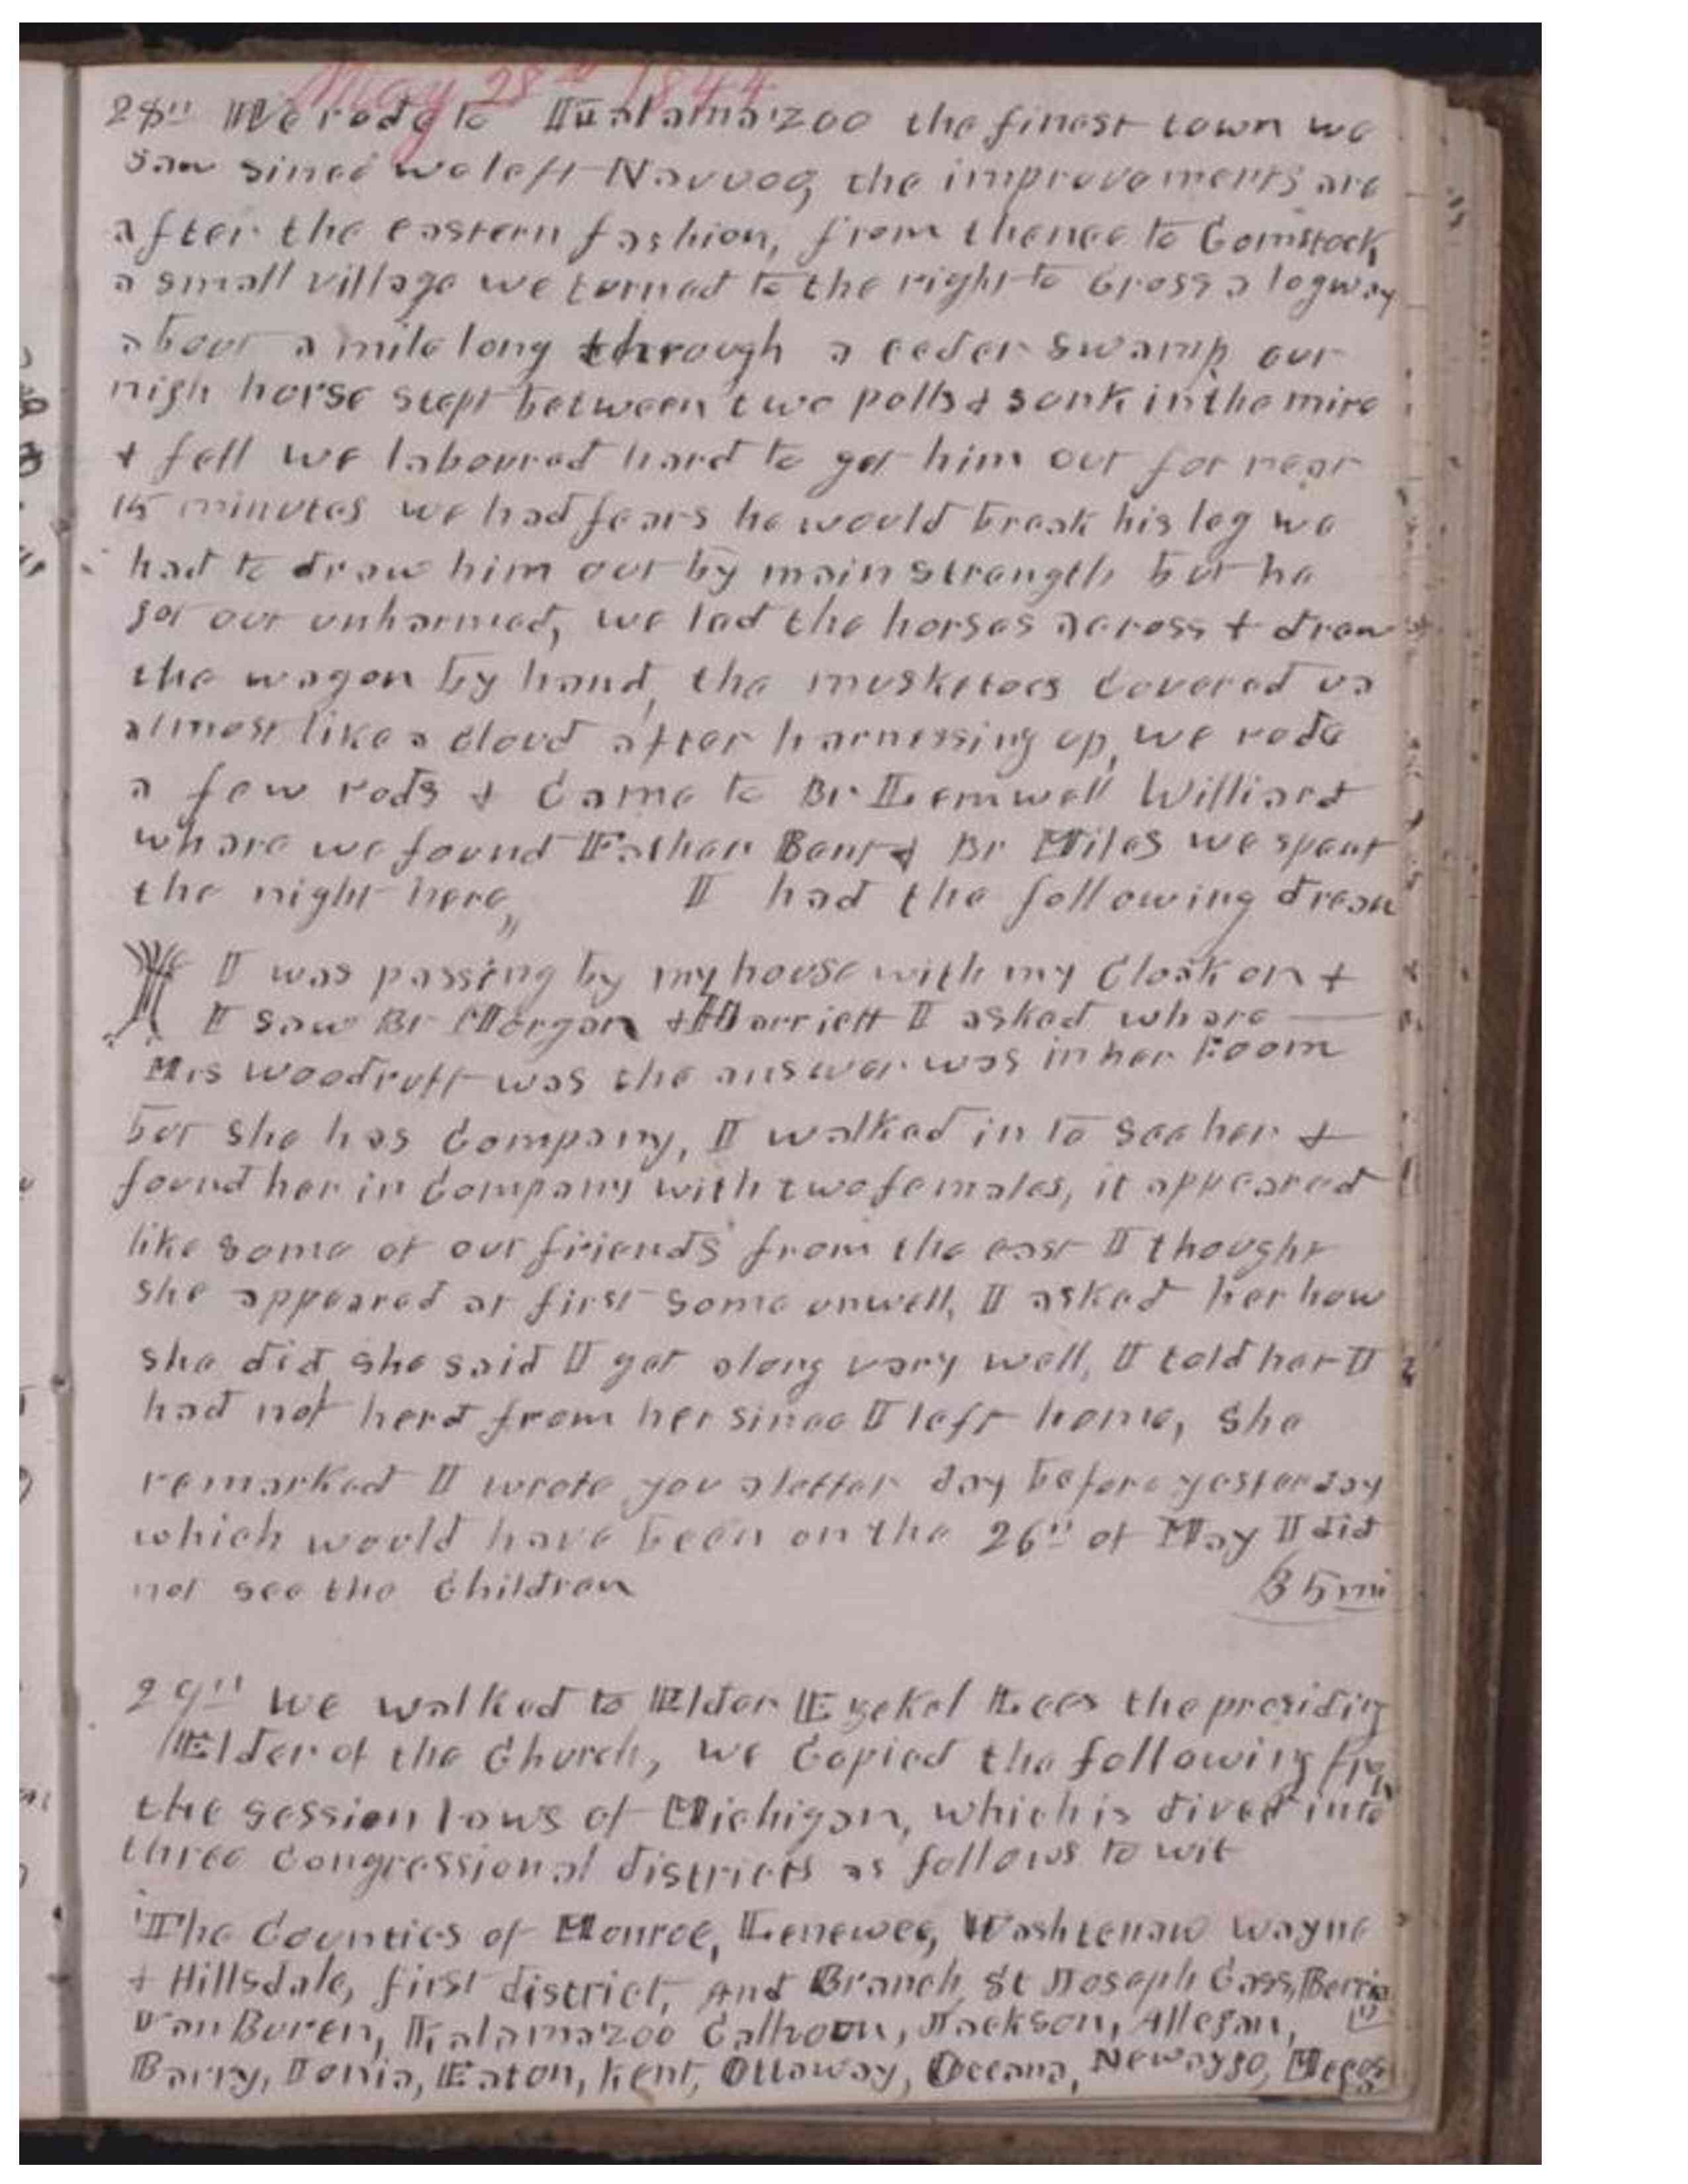 May 28th 1844
28th We rode to Kalamazoo the finest town we
saw since we left Nauvoo, the improvements are
after the eastern fashion, from thence to Comstock
a small village we turned to the right to Cross a logway
about a mile long through a ceder swamp our
nigh horse stept between two polls & sunk in the mire
& fell we laboured hard to get him out for near
15 minutes we had fears he would break his leg we
had to draw him out by main strength but he
got out unharmed, we led the horses across & drew
the wagon by hand, the musketoes Covered us
almost like a Cloud after harnessing up, we rode
a few rods & Came to Br Lemwell Williard
whare we found Father Bent & Br Miles we spent
the night here,, I had the following dream
I was passing by my house with my Cloak on &
I saw Br Morgan & Harriett I asked whare
Mrs Woodruff was the answer was in her Room
but she has Company, I walked in to see her &
found her in Company with two females, it appeared
like some of our friends from the east I thought
she appeared at first some unwell, I asked her how
she did, she said I get along vary well, I told her I
had not herd from her since I left home, she
remarked I wrote you a letter day before yesterday
which would have been on the 26th of May I did
not see the Children 35 mi
29th We walked to Elder Ezekel Lees the presiding
Elder of the Church, we Copied the following from
the session laws of Michigan, which is dived into
three Congressional districts as follows to wit
The Counties of Monroe, Lenewee, Washtenaw Wayne
& Hillsdale, first district, And Branch, St Joseph Cass, Berrien
Van Buren, Kalamazoo Calhoun, Jackson, Allegan,
Barry, Ionia, Eaton, Kent, Ottoway, Oceana, Newaygo, Mecos